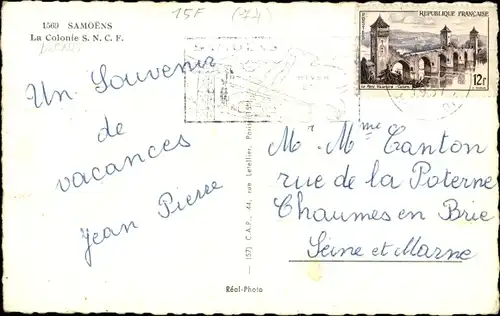 1569 SAMOËNS
La Colonie S. N. C. F.
15F (74)
Un Souvenir
de
vacances
Jean Pierre
SAMOËNS
HIVER
REPUBLIQUE FRANÇAISE
12F
Mr Mme Canton
rue de la Poterne
Chaumes en Brie
Seine et Marne
(57) C.A.P., 44, rue Letellier, Paris
Réal-Photo